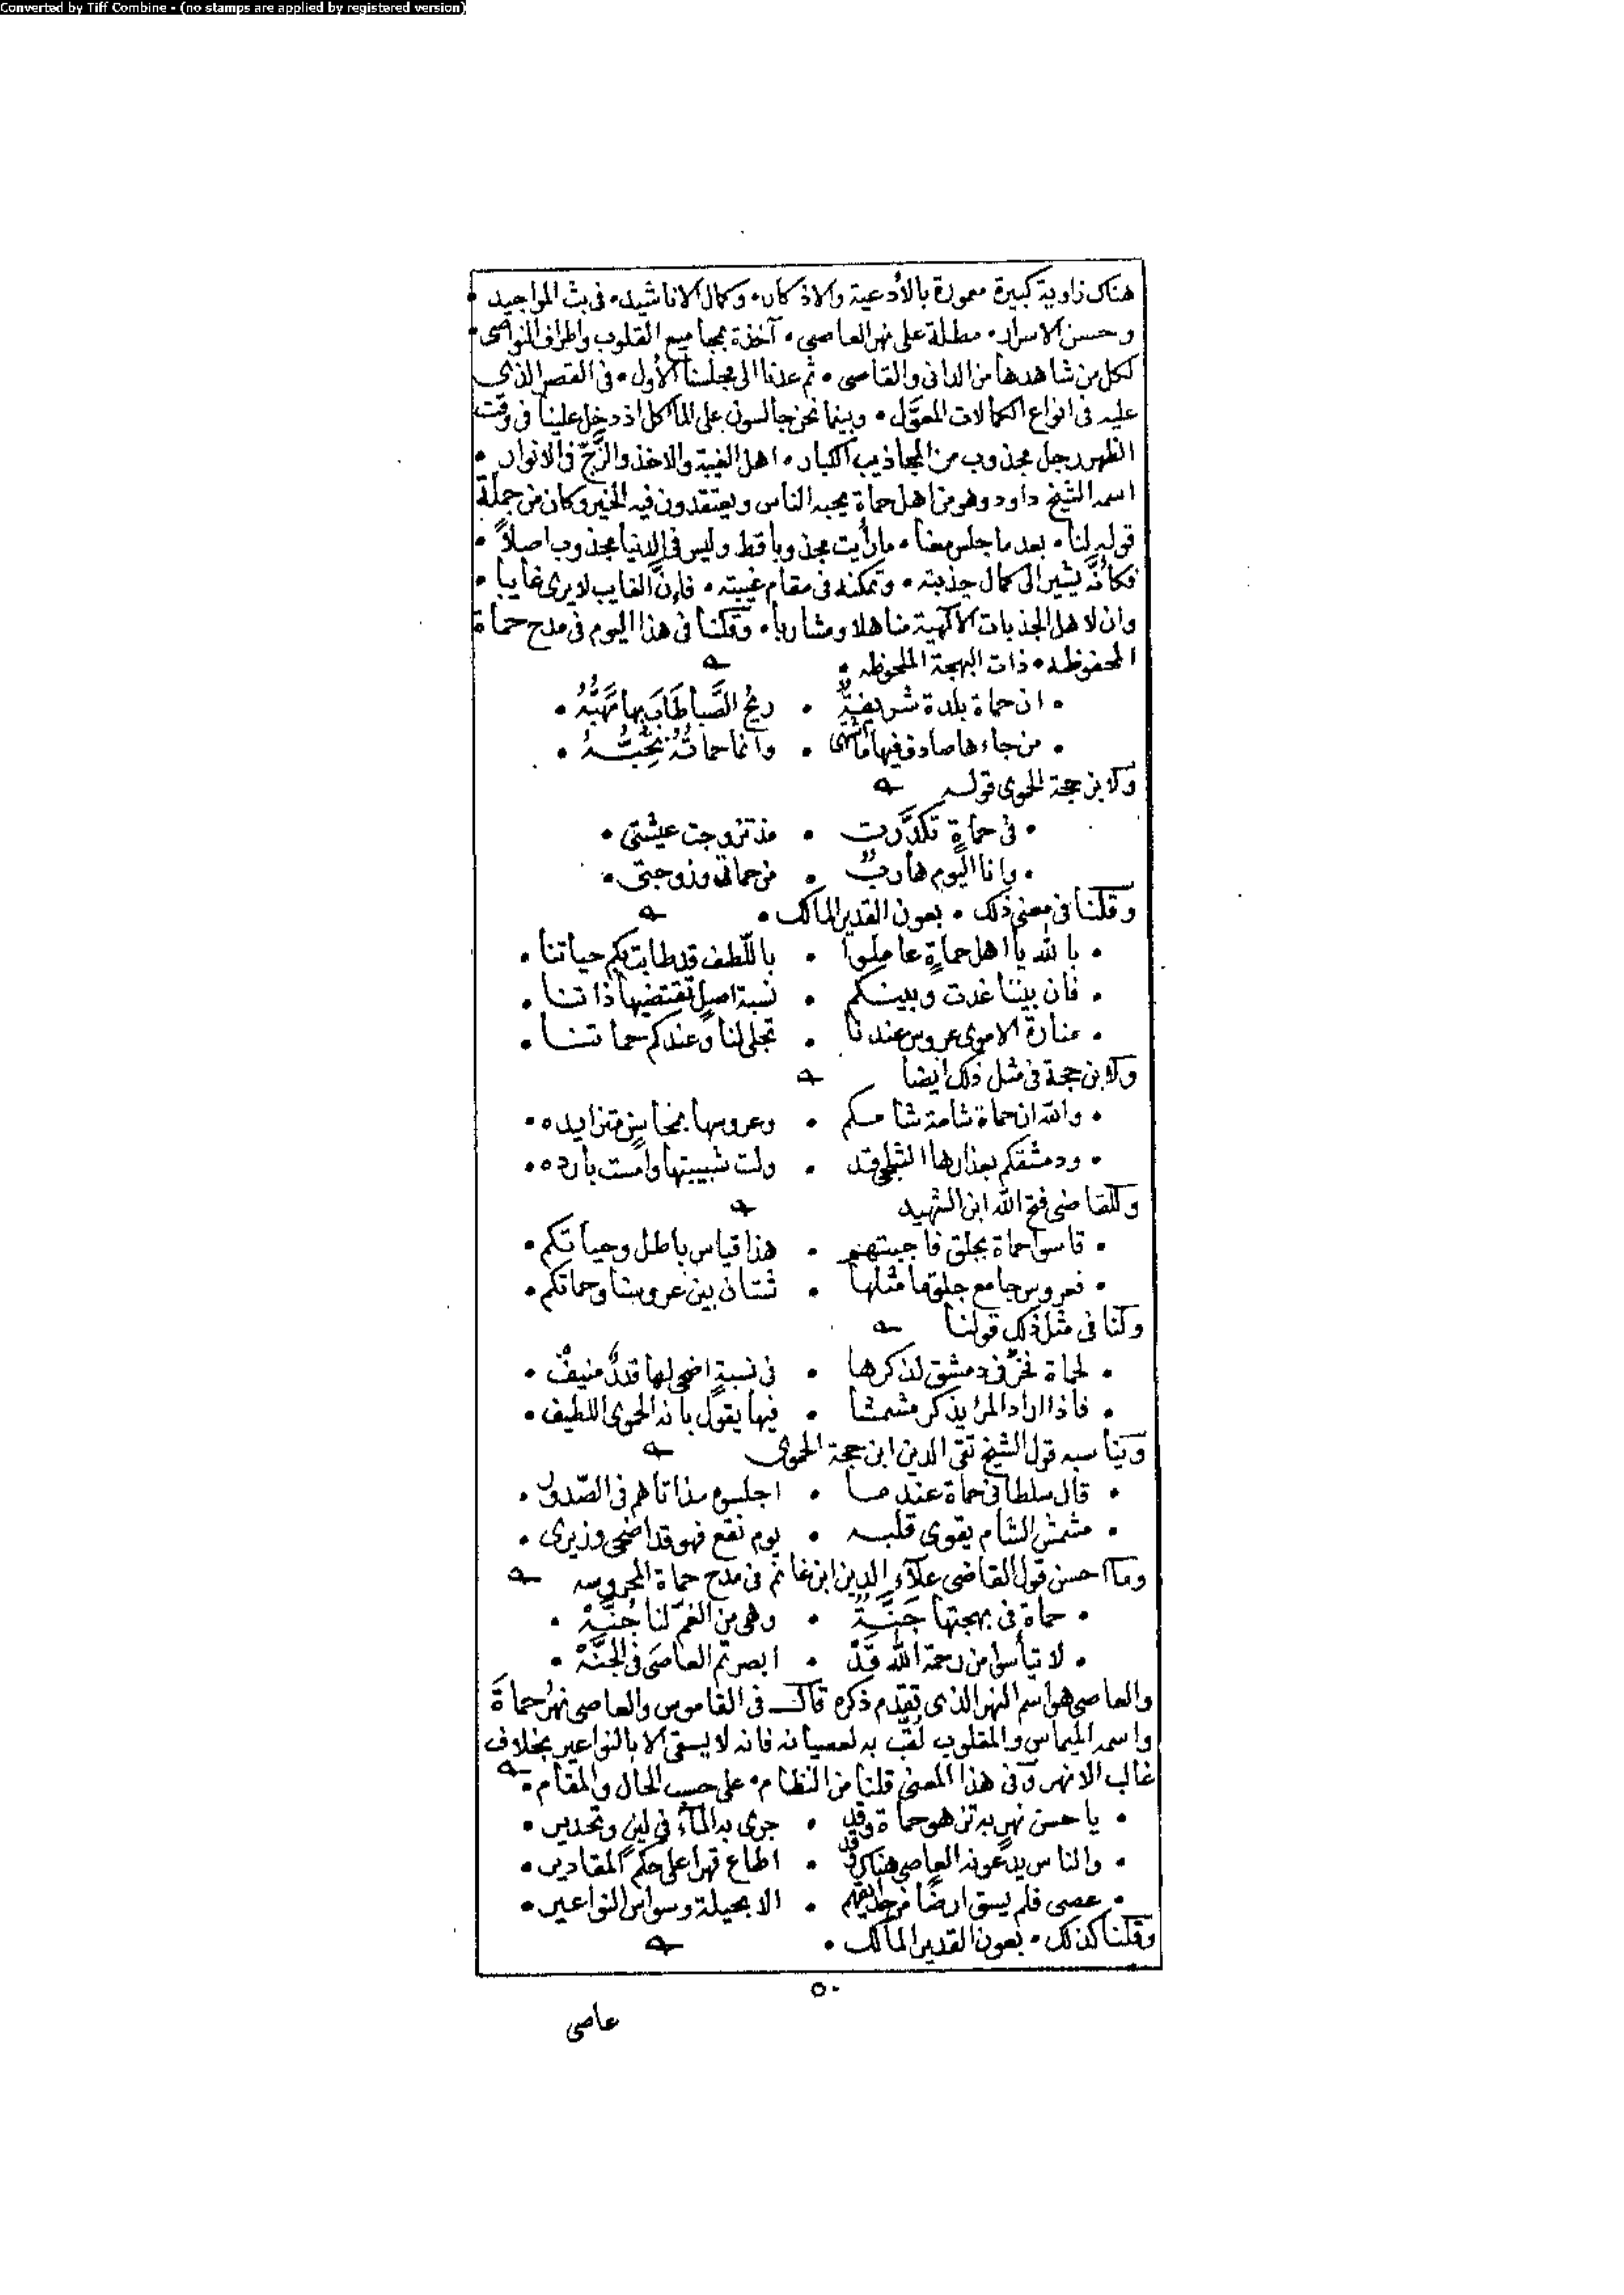 Converted by Tiff Combine - (no stamps are applied by registered version)
هناك زاوية كبيرة معمورة بالأدعية والاذكار • وكمال الاناشيد • فى بث المواجيد •
وحسن الاسرار • مطلة على نهر العاصى • آخذة بمجاميع القلوب واطراف النواصى •
لكل من شاهدها من الدانى والقاصى • ثم عدنا الى مجلسنا الأول • فى القصر الذى
عليه فى انواع الكمالات المعوَّل • وبينما نحن جالسون على المأكل اذ دخل علينا فى وقت
الظهر رجل مجذوب من المجاذيب الكبار • اهل الغيبة والاخذ والزَّجّ فى الانوار •
اسمه الشيخ داود وهو من اهل حماة يحبه الناس ويعتقدون فيه الخير وكان من جملة
قوله لنا • بعد ما جلس معنا • ما رأيت مجذوبا قط وليس فى الدنيا مجذوب اصلاً •
فكأنَّه يشير الى كمال جذبته • وتمكنه فى مقام غيبته • فإنَّ الغايب لا يرى غايبا •
وان لاهل الجذبات الالهية مناهلا ومشاربا • وقلنا فى هذا اليوم فى مدح حماة
المحفوظه • ذات البهجة الملحوظه •
• ان حماة بلدة شريفةٌ • ريحُ الصَّبا طَابَ بها مَهَبُّهُ •
• من جاءها صادف فيها ما اشتهى • وانما حماتُهُ تُحِبُّـهُ •
ولابن حجة الحموى قوله
• فى حماةٍ تكدَّرت • مذ تزوجت عيشتى •
• وانا اليوم هاربٌ • من حماتى وزوجتى •
وقلنا فى معنى ذلك • بعون القدير المالك •
• بالله يا اهل حماةٍ عاملوا • باللّطف قد طابت بكم حياتنا •
• فان بيننا غدت وبينكم • نسبة اصل تقتضيها ذاتنا •
• منارة الاموى عروس عندنا • تجلى لنا وعندكم حماتنا •
ولابن حجة فى مثل ذلك ايضا
• والله ان حماة شامة شامكم • وعروسها بمحاسنٍ متزايده •
• ودمشقكم بعذارها الثلجى قد • ولت شبيبتها وامست بارده •
وللقاضى فتح الله ابن الشهيد
• قاسوا حماة بجلق فاجبتهم • هذا قياس باطل وحياتكم •
• فعروس جامع جلق ما مثلها • شتان بين عروسنا وحماتكم •
ولنا فى مثل ذلك قولنا
• لحماة فخرٌ فى دمشق لذكرها • فى نسبةٍ اضحى لها قدرٌ منيفٌ •
• فاذا اراد المرأ يذكر مشمشا • فيها يقول بانه الحموى اللطيف •
ويناسبه قول الشيخ تقى الدين ابن حجة الحموى
• قال سلطان حماة عندما • اجلسوه مذ اتاهم فى الصّدور •
• مشمش الشام يقوى قلبه • يوم نقع فهو قد اضحى وزيرى •
وما احسن قول القاضى علاء الدين ابن غانم فى مدح حماة المحروسه
• حماة فى بهجتها جَنَّةٌ • وهى من الغمّ لنا جُنَّةْ •
• لا تيأسوا من رحمة الله قَدْ • ابصرتم العاصَى فى الجَنَّةْ •
والعاصى هو اسم النهر الذى تقدم ذكره قال فى القاموس والعاصى نهرُ حماةَ
واسمه الميماس والمقلوب لُقِّب به لعصيانه فانه لا يسقى الا بالنواعير بخلاف
غالب الانهر وفى هذا المعنى قلنا من النظام • على حسب الحال والمقام •
• يا حسن نهرٍ به تزهو حماة وقد • جرى به الماءُ فى لينٍ وتحدير •
• والناس يدعونه العاصى هناك وقد • اطاع قهرا على حكم المقادير •
• عصى فلم يسق ارضًا • الا بحيلة وسواس النواعير •
وقلنا كذلك • بعون القدير المالك •
٥٠
عاصى